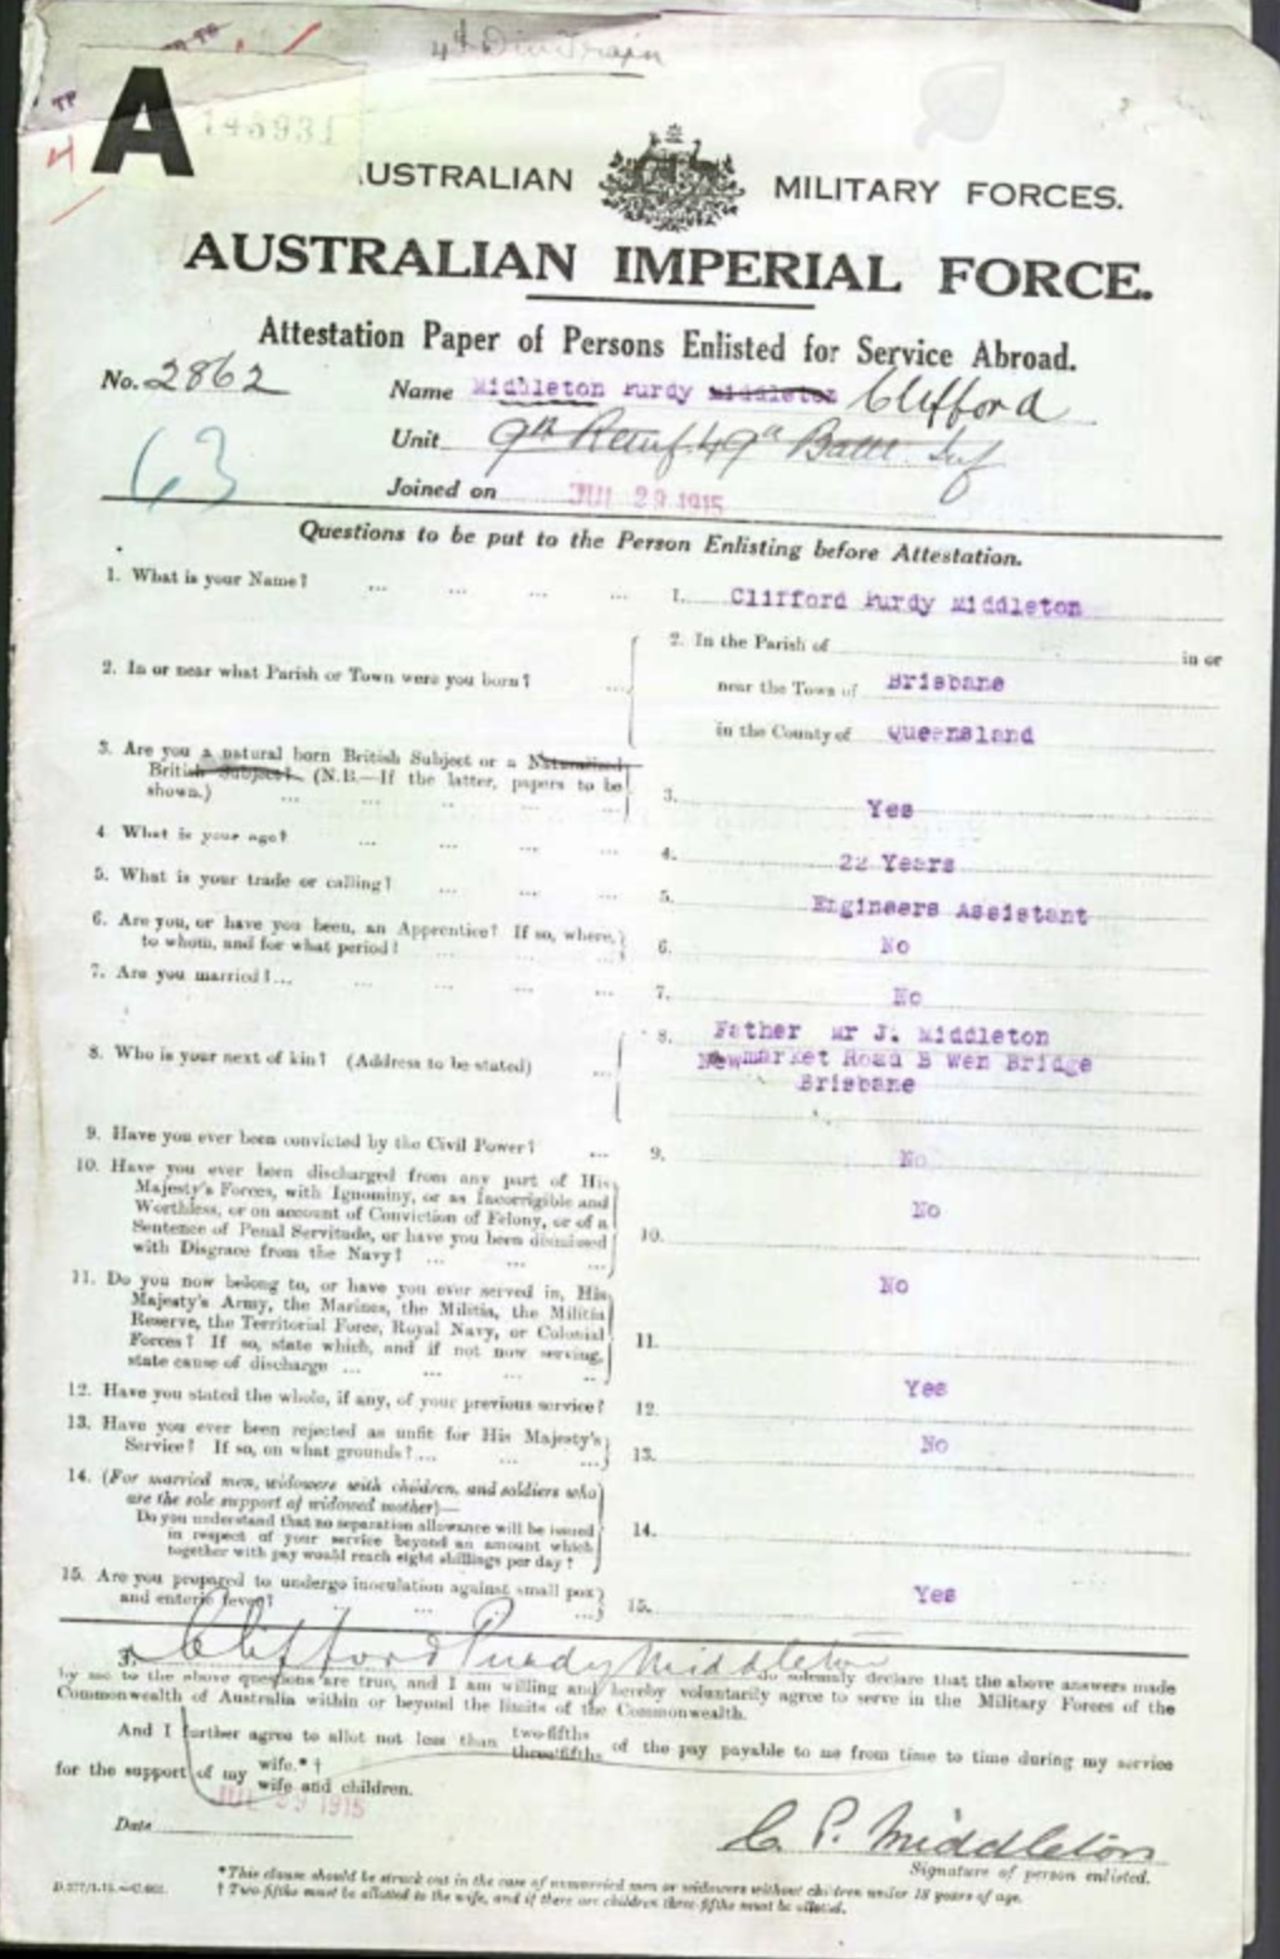 4th Div Train
A
145931
TP
4
AUSTRALIAN MILITARY FORCES.
AUSTRALIAN IMPERIAL FORCE.
Attestation Paper of Persons Enlisted for Service Abroad.
No. 2862
Name Middleton Purdy Middleton Clifford
Unit 9th Reinf. 49th Battn. Inf
63
Joined on JUL 29 1915
Questions to be put to the Person Enlisting before Attestation.
1. What is your Name? ... ... ... ... 1. Clifford Purdy Middleton
2. In the Parish of in or
2. In or near what Parish or Town were you born? ... near the Town of Brisbane
in the County of Queensland
3. Are you a natural born British Subject or a Naturalised
British Subject? (N.B.—If the latter, papers to be
shown.) ... ... ... ... ... 3. Yes
4. What is your age? ... ... ... ... 4. 22 Years
5. What is your trade or calling? ... ... ... 5. Engineers Assistant
6. Are you, or have you been, an Apprentice? If so, where,
to whom, and for what period? ... ... ... 6. No
7. Are you married?... ... ... ... ... 7. No
8. Father Mr J. Middleton
8. Who is your next of kin? (Address to be stated) ... Newmarket Road B wen Bridge
Brisbane
9. Have you ever been convicted by the Civil Power? ... 9. No
10. Have you ever been discharged from any part of His
Majesty's Forces, with Ignominy, or as Incorrigible and
Worthless, or on account of Conviction of Felony, or of a
Sentence of Penal Servitude, or have you been dismissed
with Disgrace from the Navy? ... ... ... 10. No
11. Do you now belong to, or have you ever served in, His
Majesty's Army, the Marines, the Militia, the Militia
Reserve, the Territorial Force, Royal Navy, or Colonial
Forces? If so, state which, and if not now serving,
state cause of discharge ... ... ... 11. No
12. Have you stated the whole, if any, of your previous service? 12. Yes
13. Have you ever been rejected as unfit for His Majesty's
Service? If so, on what grounds?... ... ... 13. No
14. (For married men, widowers with children, and soldiers who
are the sole support of widowed mother)—
Do you understand that no separation allowance will be issued
in respect of your service beyond an amount which
together with pay would reach eight shillings per day? 14.
15. Are you prepared to undergo inoculation against small pox
and enteric fever? ... ... 15. Yes
I, Clifford Purdy Middleton do solemnly declare that the above answers made
by me to the above questions are true, and I am willing and hereby voluntarily agree to serve in the Military Forces of the
Commonwealth of Australia within or beyond the limits of the Commonwealth.
And I further agree to allot not less than two-fifths three-fifths of the pay payable to me from time to time during my service
for the support of my wife.*† wife and children.
JUL 29 1915
Date
C. P. Middleton
Signature of person enlisted.
*This clause should be struck out in the case of unmarried men or widowers without children under 18 years of age.
† Two-fifths must be allotted to the wife, and if there are children three-fifths must be allotted.